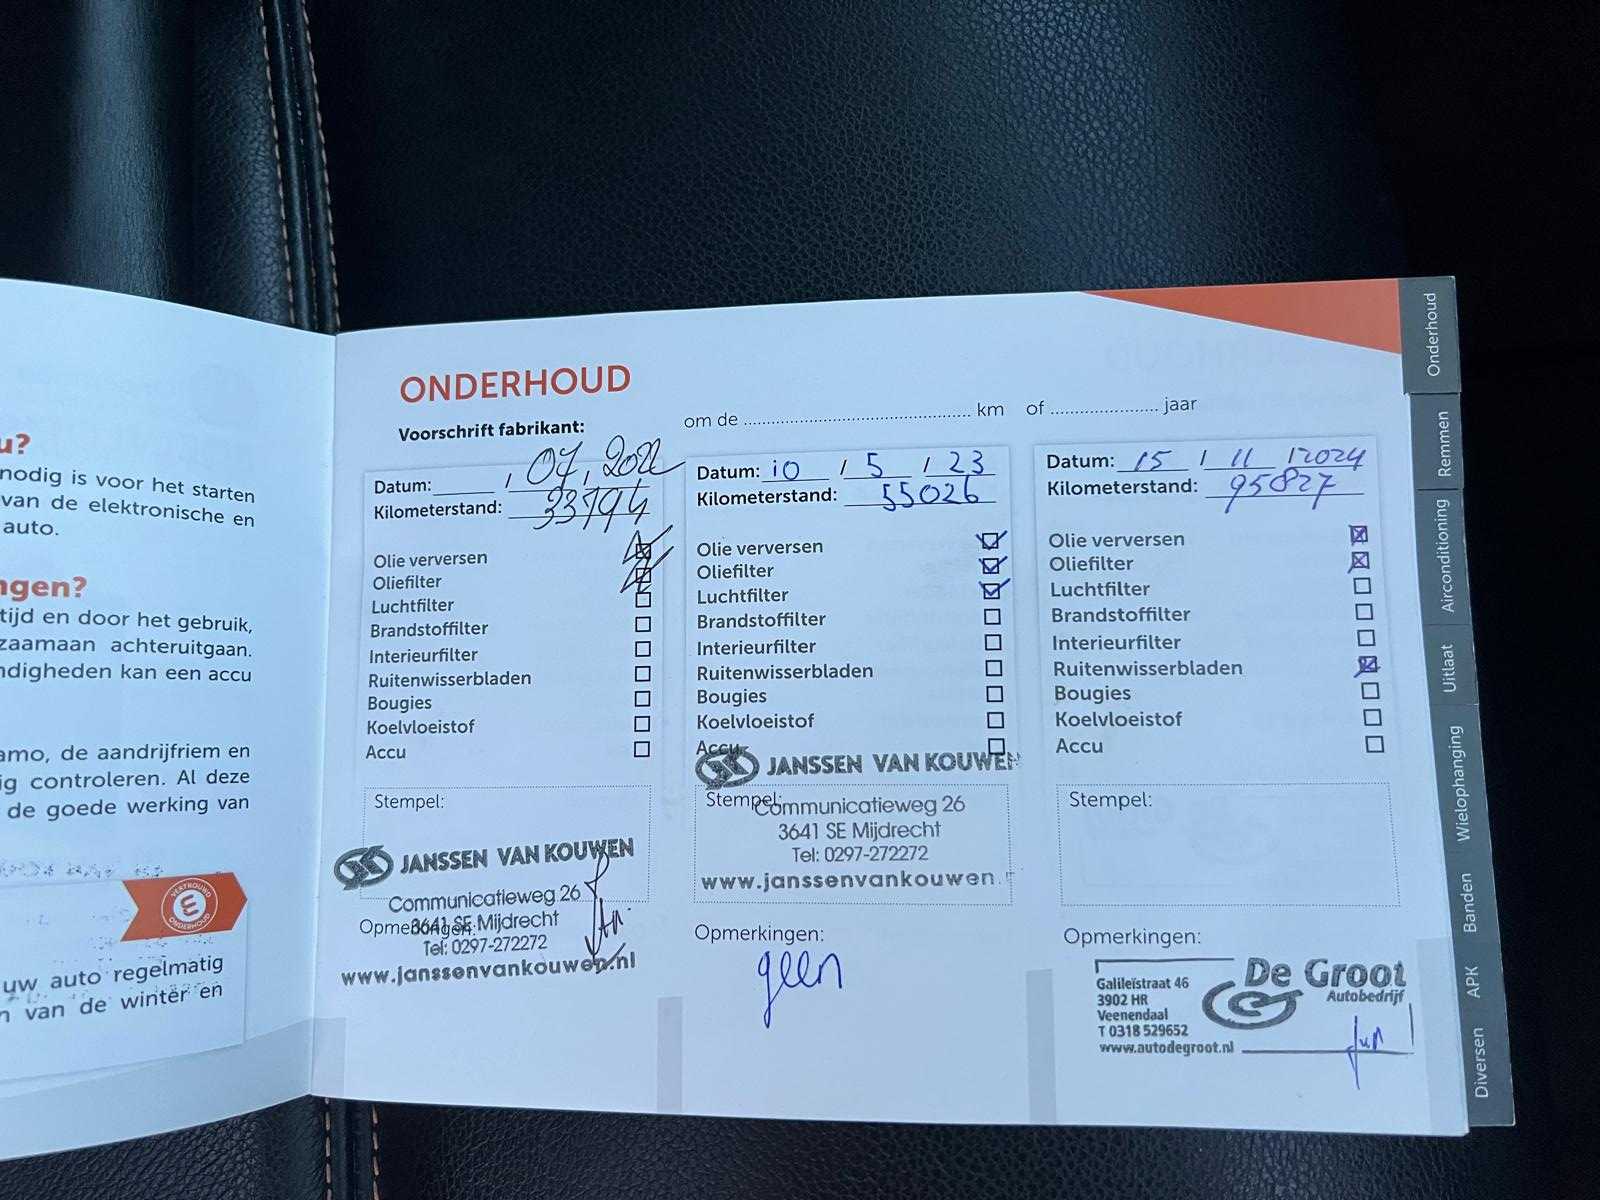 u?
nodig is voor het starten
van de elektronische en
auto.
ngen?
tijd en door het gebruik,
zaamaan achteruitgaan.
ndigheden kan een accu
amo, de aandrijfriem en
ig controleren. Al deze
de goede werking van
VERTROUWD
ONDERHOUD
uw auto regelmatig
n van de winter en
ONDERHOUD
Voorschrift fabrikant: om de ........ km of ........ jaar
Datum: , 07, 2022
Kilometerstand: 33794
Olie verversen
Oliefilter
Luchtfilter
Brandstoffilter
Interieurfilter
Ruitenwisserbladen
Bougies
Koelvloeistof
Accu
Stempel:
JANSSEN VAN KOUWEN
Communicatieweg 26
3641 SE Mijdrecht
Opmerkingen:
Tel: 0297-272272
www.janssenvankouwen.nl
Datum: 10 / 5 / 23
Kilometerstand: 55026
Olie verversen
Oliefilter
Luchtfilter
Brandstoffilter
Interieurfilter
Ruitenwisserbladen
Bougies
Koelvloeistof
Accu
JANSSEN VAN KOUWEN
Stempel:
Communicatieweg 26
3641 SE Mijdrecht
Tel: 0297-272272
www.janssenvankouwen.
Opmerkingen:
geen
Datum: 15 / 11 / 2024
Kilometerstand: 95827
Olie verversen
Oliefilter
Luchtfilter
Brandstoffilter
Interieurfilter
Ruitenwisserbladen
Bougies
Koelvloeistof
Accu
Stempel:
Opmerkingen:
De Groot
Autobedrijf
Galileïstraat 46
3902 HR
Veenendaal
T 0318 529652
www.autodegroot.nl
Onderhoud
Remmen
Airconditioning
Uitlaat
Wielophanging
Banden
APK
Diversen